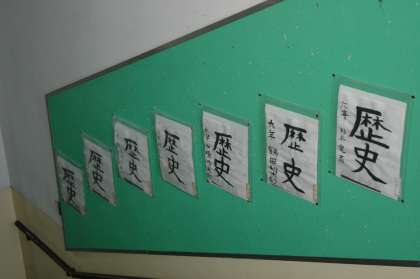 歴史
歴史
歴史
歴史
歴史
歴史
六年
歴史
六年